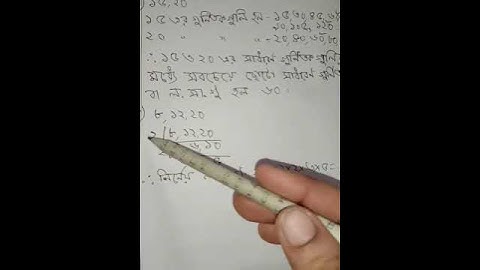 ১৫, ২০
১৫ এর গুণিতকগুলি হল - ১৫, ৩০, ৪৫, ৬০
৯০, ১০৫, ১২০
২০ " " " - ২০, ৪০, ৬০, ৮০
∴ ১৫ ও ২০ এর সাধারণ গুণিতকগুলির
মধ্যে সবচেয়ে ছোটো সাধারণ গুণিতক
বা ল. সা. গু হল ৬০।
৮, ১২, ২০
২ | ৮, ১২, ২০
৬, ১০
∴ নির্ণেয়